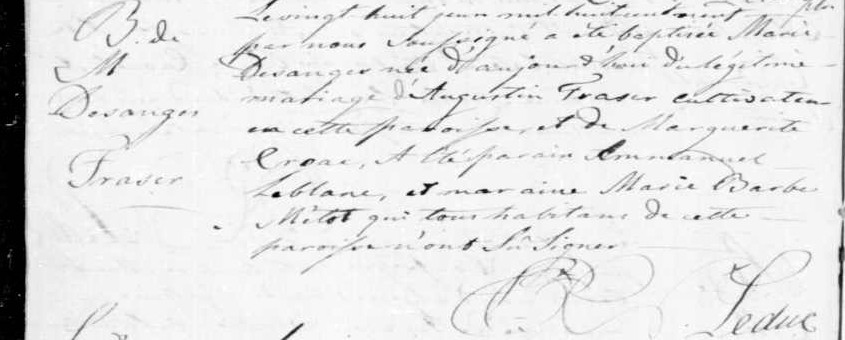 B. de
M
Desanges
Fraser
Le vingt huit juin mil huit cent
par nous soussigné a été baptisée Marie
Desanges née d'aujourd'hui du légitime
mariage d'Augustin Fraser cultivateur
en cette paroisse, et de Marguerite
Croac, A été parain Emmanuel
Leblanc, et maraine Marie Barbe
Métot qui tous habitans de cette
paroisse n'ont sû signer
Leduc